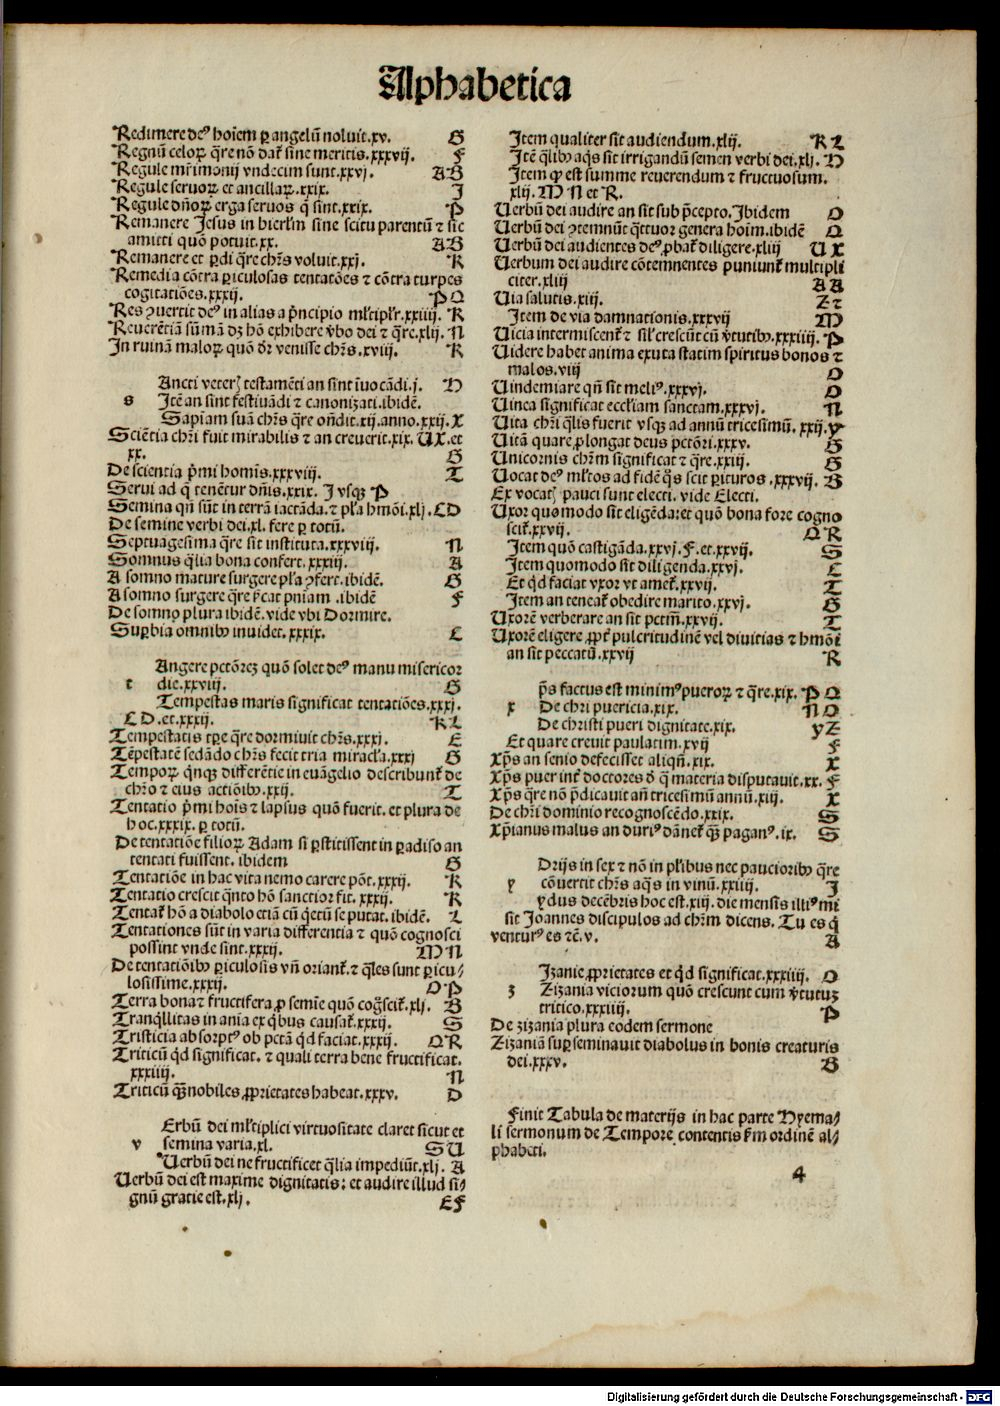 Alphabetica
Redimere deꝰ hoīem ꝑ angelū noluit.xv. G
Regnū celoꝝ q̄re nō daƭ sine meritis.xxxvij. F
Regule mr̄imonij vndecim sunt.xxvj. A B
Regule seruoꝝ et ancillaꝝ.xxix. I
Regule dn̄oꝝ erga seruos q̄ sint.xxix. P
Remanere Jesus in hierl̄m sine scitu parentū ⁊ sic
amitti quō potuit.xx. A B
Remanere et ꝑdi q̄re chr̄s voluit.xxj. K
Remedia cōtra ꝑiculosas tentatōes ⁊ cōtra turpes
cogitatiōes.xxxij. P Q
Res ꝯuertit deꝰ in alias a pͥncipio ml̄tipl̄r.xxiiij. K
Reuerētiā sūmā dꝫ hō exhibere v̄bo dei ⁊ q̄re.xlij. N
In ruinā maloꝝ quō dr̄ venisse chr̄s.xviij. K
Ancti veterꝭ testamēti an sint īuocādi.j. H
s Itē an sint festiuādi ⁊ canonizati.ibidē.
Sapīam suā chr̄s q̄re on̄dit.xij.anno.xxij. X
Sciētia chr̄i fuit mirabilis ⁊ an creuerit.xix. U X. et
xx. G
De scientia pͥmi homīs.xxxviij. T
Serui ad q̄ tenētur dn̄is.xxix. I vsqꝫ P
Semina qn̄ sūt in terrā iactāda.⁊ pl̄a hmōi.xlj. C D
De semine verbi dei.xl. fere ꝑ totū.
Septuagesima q̄re sit instituta.xxxviij. N
Somnus q̄lia bona confert.xxxiij. A
A somno mature surgere pl̄a ꝯfert.ibidē. G
A somno surgere q̄re pͥcat pn̄iam.ibidē F
De somno plura ibidē.vide vbi Dormire.
Suꝑbia omnibꝰ inuidet.xxxix. L
Angere pctōreꝫ quō solet deꝰ manu misericor
t die.xxviij. G
Tempestas maris significat tentatiōes.xxxj.
C D. et.xxxij. K L
Tempestatis tꝑe q̄re dormiuit chr̄s.xxxj. E
Tēpestatē sedādo chr̄s fecit tria miracl̄a.xxxj G
Tempoꝝ qͥnqꝫ differētie in euāgelio describunƭ de
chr̄o ⁊ eius actiōibꝰ.xxij. T
Tentatio pͥmi hoīs ⁊ lapsus quō fuerit. et plura de
hoc.xxxix. ꝑ totū.
De tentatiōe filioꝝ Adam si ꝑstitissent in ꝑadiso an
tentati fuissent. ibidem G
Tentatiōe in hac vita nemo carere pōt.xxxij. K
Tentatio crescit qͥnto hō sanctior fit.xxxij. K
Tentaƭ hō a diabolo etiā cū qͥetū se putat.ibidē. L
Tentationes sūt in varia differentia ⁊ quō cognosci
possint vnde sint.xxxij. M N
De tentatiōibꝰ ꝑiculosis vn̄ orianƭ.⁊ q̄les sunt ꝑicu⸗
losissime.xxxij. O P
Terra bona ⁊ fructifera ꝓ semīe quō cog̊sciƭ.xlj. B
Tranqͥllitas in anīa ex qͥbus causaƭ.xxxij. S
Tristicia absorptꝰ ob pctā qͥd faciat.xxxij. Q R
Triticū qͥd significat.⁊ quali terra bene fructificat.
xxxiiij. N
Triticū qͣꝫ nobiles ꝓprietates habeat.xxxv. D
Erbū dei ml̄tiplici virtuositate claret sicut et
v semina varia.xl. S U
Uerbū dei ne fructificet q̄lia impediūt.xlj. A
Uerbū dei est maxime dignitatis: et audire illud si⸗
gnū gratie est.xlj. E F
Item qualiter sit audiendum.xlij. K L
Itē q̄libꝰ aqͥs sit irrigandū semen verbi dei.xlj. H
Item ꝙ est summe reuerendum ⁊ fructuosum.
xlij. M N et R.
Uerbū dei audire an sit sub p̄cepto.Ibidem O
Uerbū dei ꝯtemnūt qͣttuor genera hoīm.ibidē Q
Uerbū dei audientes deꝰ ꝓbaƭ diligere.xliij U X
Uerbum dei audire cōtemnentes puniunƭ multipli
citer.xliij A A
Uia salutis.xiij. Z ⁊
Item de via damnationis.xxxvij M
Uicia intermiscenƭ ⁊ sil̄ crescūt cū v̄tutibꝰ.xxxiiij. P
Uidere habet anima exuta statim spiritus bonos ⁊
malos.viij O
Uindemiare qn̄ sit meliꝰ.xxxvj. O
Uinea significat eccl̄iam sanctam.xxxvj. N
Uita chr̄i q̄lis fuerit vsqꝫ ad annū tricesimū. xxij. Y
Uitā quare ꝓlongat deus pctōri.xxxv. G
Unicornis chr̄m significat ⁊ q̄re.xxiij. G
Uocat deꝰ ml̄tos ad fidē qͦs scit ꝑituros.xxxvij. B
Ex vocatꝭ pauci sunt electi. vide Electi.
Uxor quomodo sit eligēda: et quō bona fore cogno
sciƭ.xxvij. Q R
Item quō castigāda.xxvj. F. et.xxvij. S
Item quomodo sit diligenda.xxvj. C
Et qͥd faciat vxor vt ameƭ.xxvij. T
Item an teneaƭ obedire marito.xxvj. G
Uxorē verberare an sit pctm̄.xxvij. T
Uxorē eligere ꝓptƭ pulcritudinē vel diuitias ⁊ hmōi
an sit peccatū.xxvij R
p̄s factus est minimꝰ pueroꝝ ⁊ q̄re.xix. P Q
x De chr̄i puericia.xix. N O
De christi pueri dignitate.xix. Y Z
Et quare creuit paulatim.xvij F
Xp̄s an senio defecisset aliqn̄.xix. X
Xp̄s puer intƭ doctores d̄ q̄ materia disputauit.xx. F
Xp̄s q̄re nō p̄dicauit an̄ tricesimū annū.xiij. X
De chr̄i dominio recognoscēdo.xxix. S
Xp̄ianus malus an duriꝰ dāneƭ qͣꝫ paganꝰ.ix. S
Drijs in sex ⁊ nō in pl̄ibus nec paucioribꝰ q̄re
y cōuertit chr̄s aqͣs in vinū.xxiiij. I
ydus decēbris hoc est.xiij. die mensis illiꝰ mi
sit Joannes discipulos ad chr̄m dicens. Tu es qͥ
venturꝰ es ⁊c̄.v. A
Izanie ꝓprietates et qͥd significat.xxxiiij. O
z Zizania viciorum quō crescunt cum v̄tutuꝫ
tritico.xxxiiij. P
De zizania plura eodem sermone
Zizaniā suꝑseminauit diabolus in bonis creaturis
dei.xxxv. B
Finit Tabula de materijs in hac parte Hyema⸗
li sermonum de Tempore contentis ẜm ordinē al⸗
phabeti.
4
Digitalisierung gefördert durch die Deutsche Forschungsgemeinschaft - DFG